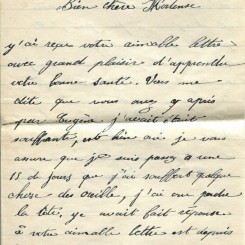 Bien chère Maleuse
j'ai reçu votre aimable lettre
avec grand plaisir d'apprendre
votre bonne santé. Vous me
dite que vous avez y après
par Eugénie j'avait était
souffrant, et bien oui je vous
assure que je suis passé a une
15 de jours que j'ai souffert quelque
chose des oreille, j'ai cru perdre
la tête, je avait fait réponse
à votre aimable lettre est depuis